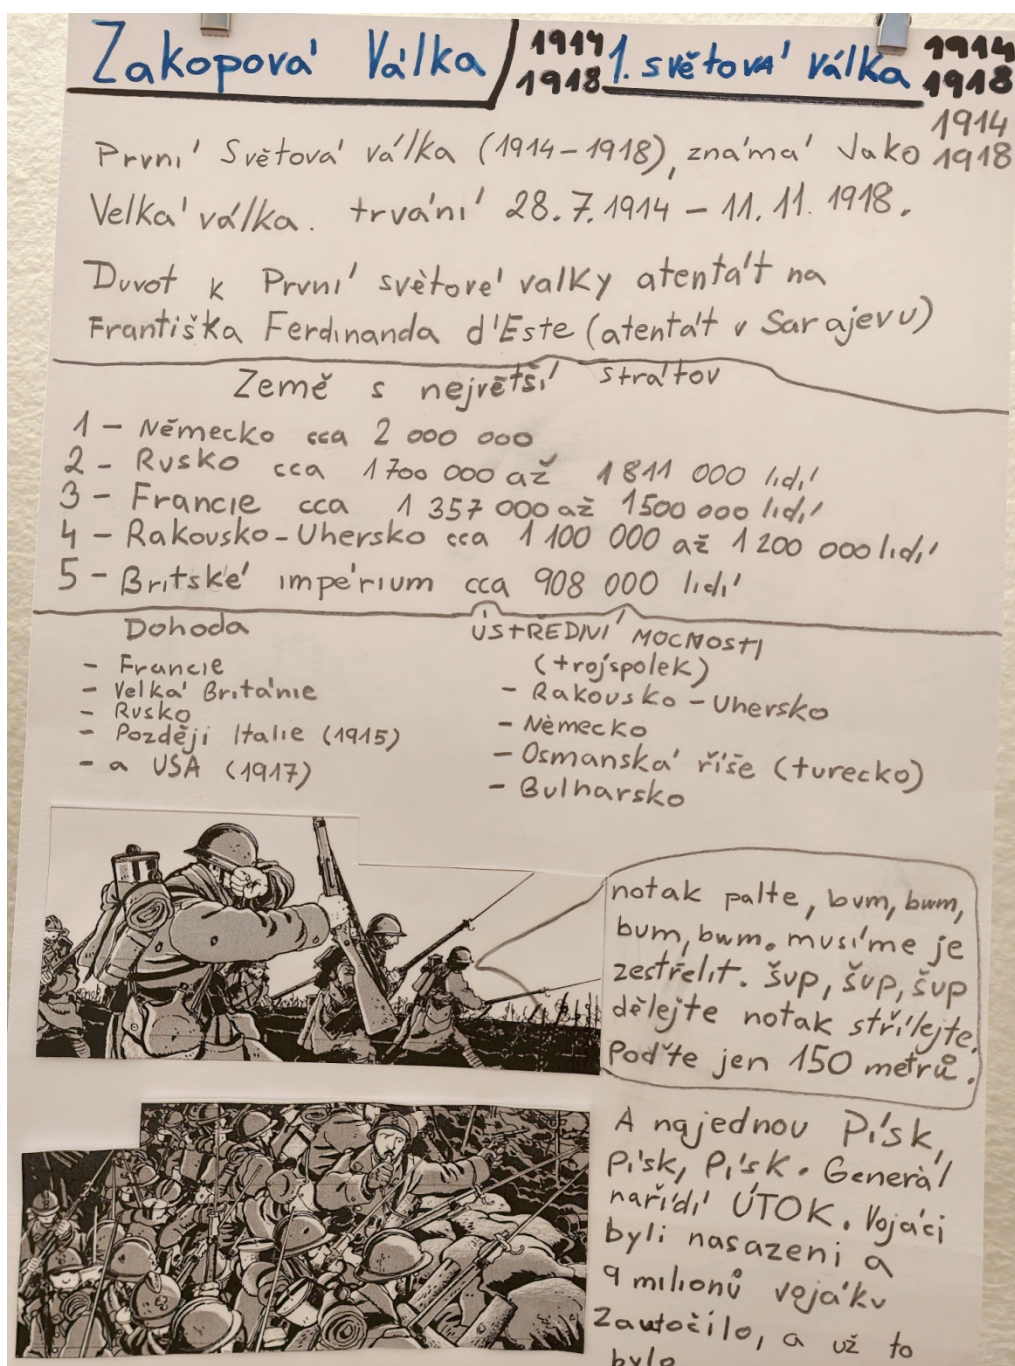 Zakopová Válka
1914
1918
1. světová válka
1914
1918
1914
1918
První Světová válka (1914-1918), známá Jako
Velká válka. trvání 28.7.1914 - 11.11.1918.
Duvot k První světové valky atentát na
Františka Ferdinanda d'Este (atentát v Sarajevu)
Země s největší strátov
1 - Německo cca 2 000 000
2 - Rusko cca 1 700 000 až 1 811 000 lidí
3 - Francie cca 1 357 000 až 1 500 000 lidí
4 - Rakousko-Uhersko cca 1 100 000 až 1 200 000 lidí
5 - Britské impérium cca 908 000 lidí
Dohoda
- Francie
- Velká Británie
- Rusko
- Později Italie (1915)
- a USA (1917)
ÚSTŘEDNÍ MOCNOSTI
(trojspolek)
- Rakousko - Uhersko
- Německo
- Osmanská říše (turecko)
- Bulharsko
notak palte, bum, bum,
bum, bum. musíme je
zestřelit. šup, šup, šup
dělejte notak střílejte.
Poďte jen 150 metrů.
A najednou Písk,
Písk, Písk. Generál
nařídí ÚTOK. Vojáci
byli nasazeni a
9 milionů vojáku
Zautočilo, a už to
bylo